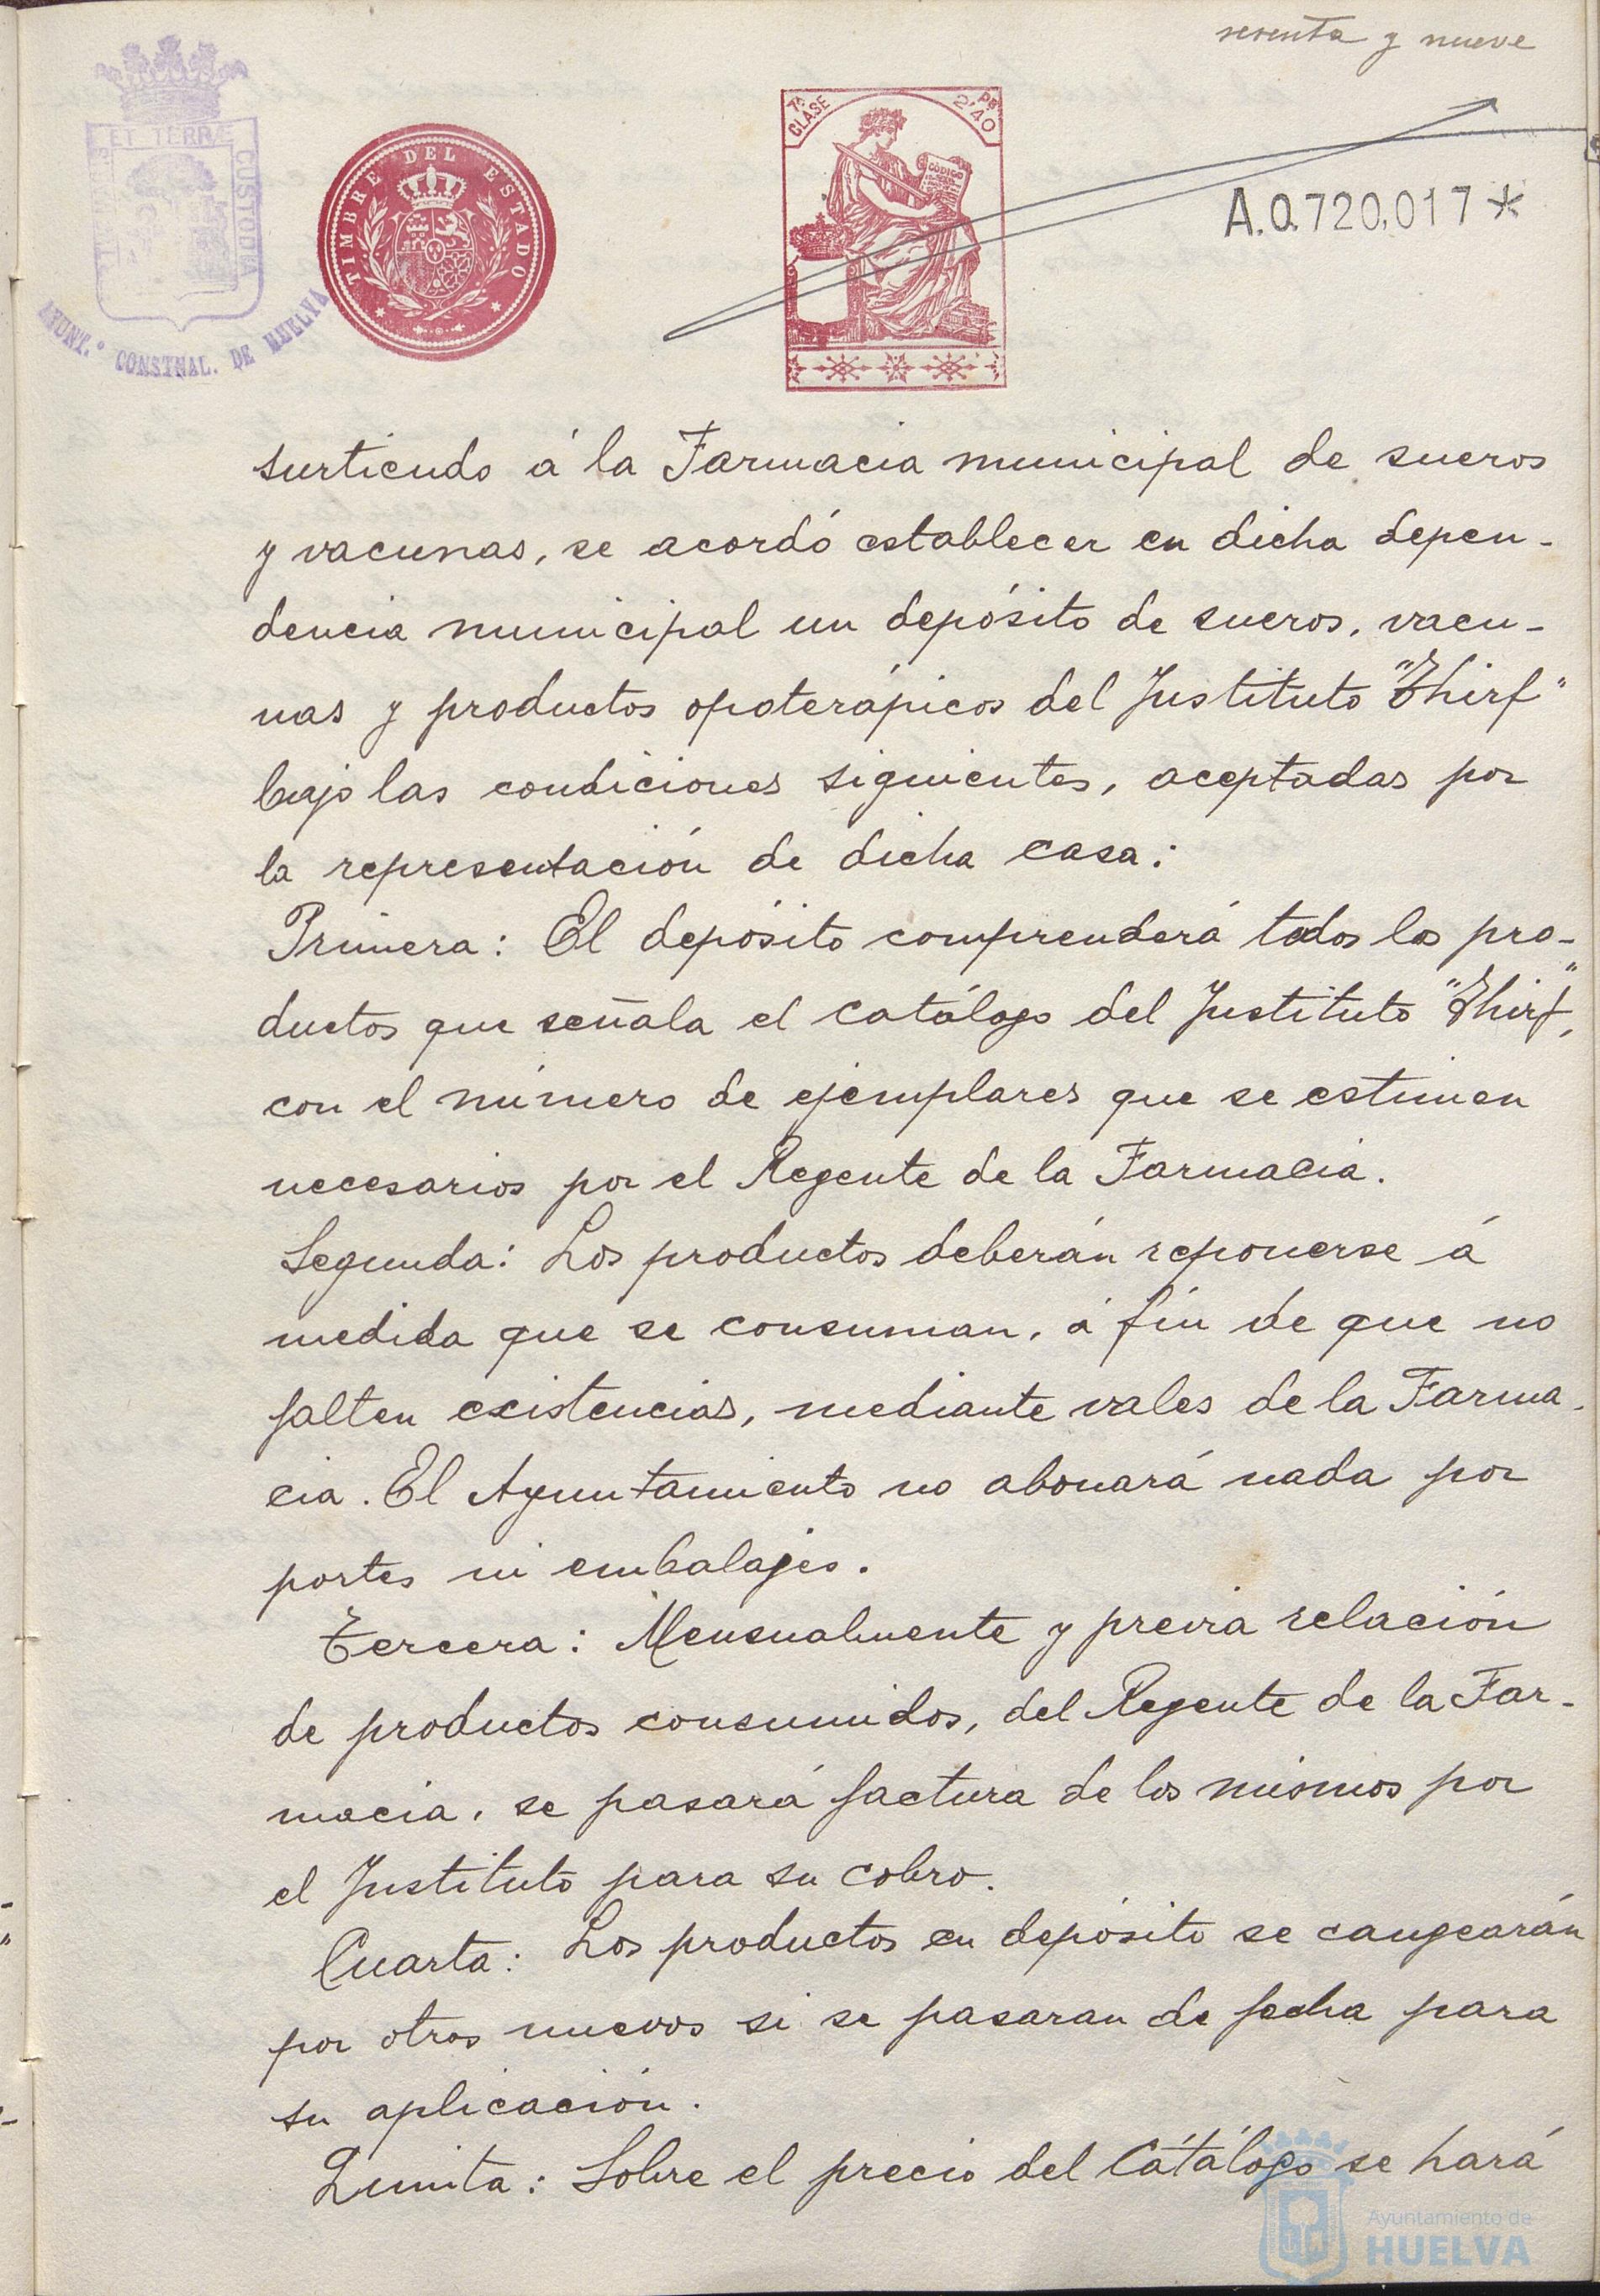 sesenta y nueve
7ª CLASE
PS 2'40
CODIGO
TIMBRE DEL ESTADO
ET TERRÆ CUSTODIA
AYUNT.º CONSTNAL. DE HUELVA
A.0.720,017*
surtiendo á la Farmacia municipal de sueros
y vacunas, se acordó establecer en dicha depen-
dencia municipal un depósito de sueros, vacu-
nas y productos opoterápicos del Instituto "Thirf"
bajo las condiciones siguientes, aceptadas por
la representación de dicha casa:
Primera: El depósito comprenderá todos los pro-
ductos que señala el catálogo del Instituto "Thirf",
con el número de ejemplares que se estimen
necesarios por el Regente de la Farmacia.
Segunda: Los productos deberán reponerse á
medida que se consuman, á fin de que no
falten existencias, mediante vales de la Farma-
cia. El Ayuntamiento no abonará nada por
portes ni embalajes.
Tercera: Mensualmente y previa relación
de productos consumidos, del Regente de la Far-
macia, se pasará factura de los mismos por
el Instituto para su cobro.
Cuarta: Los productos en depósito se cangearán
por otros nuevos si se pasaran de fecha para
su aplicación.
Quinta: Sobre el precio del Cátálogo se hará
Ayuntamiento de
HUELVA